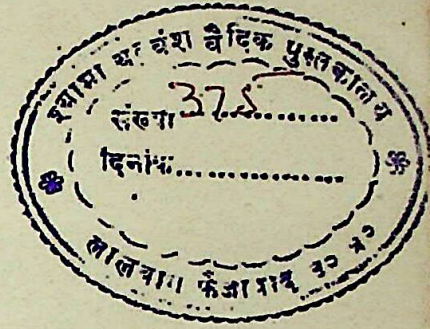 श्यामा चन्द्र वंश वैदिक पुस्तकालय
संख्या 375
दिनांक
लालबाग फैजाबाद उ० प्र०